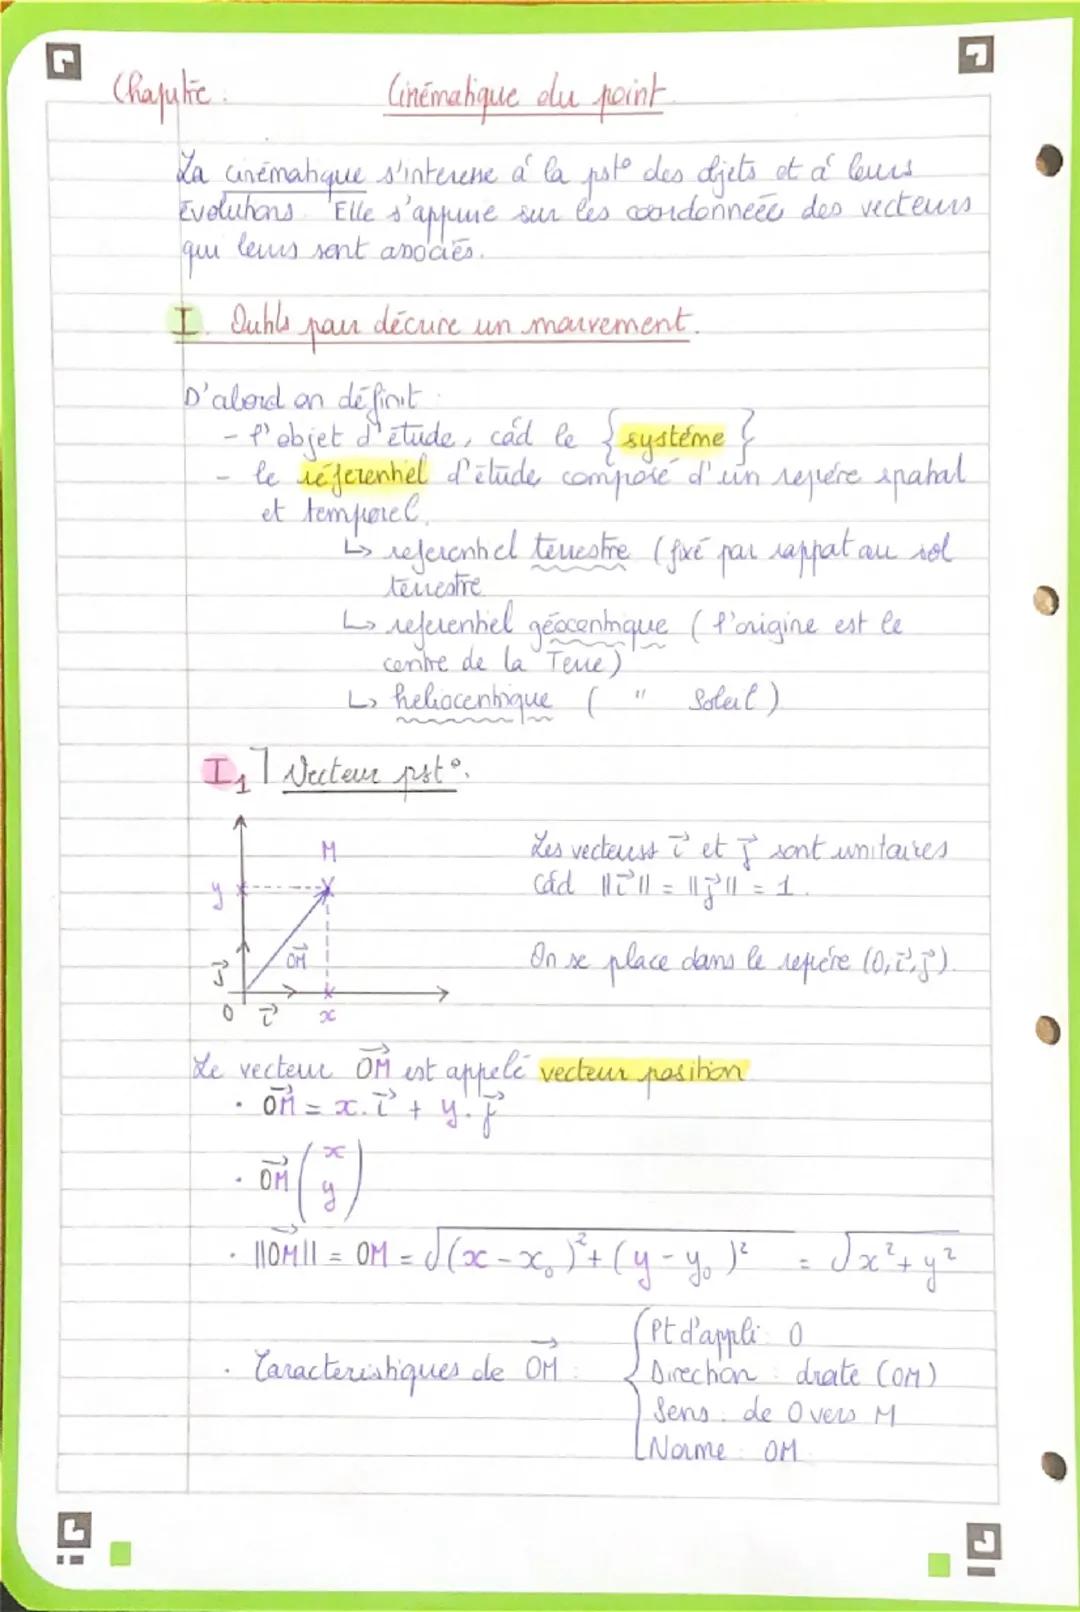 Chapitre : Cinématique du point
La cinématique s'interesse à la pst° des objets et à leurs
évolutions. Elle s'appuie sur les coordonnées des vecteurs
qui leurs sont associés.
I. Outils pour décrire un mouvement.
D'abord on définit :
- l'objet d'étude, càd le {système}
- le référentiel d'étude composé d'un repère spatial
et temporel.
↳ referentiel terrestre (fixé par rapport au sol
terrestre
↳ referentiel géocentrique (l'origine est le
centre de la Terre)
↳ héliocentrique ( " Soleil)
I₁] Vecteur pst°.
M
y
OM⃗
j⃗
O i⃗ x
Les vecteurs i⃗ et j⃗ sont unitaires
càd ||i⃗|| = ||j⃗|| = 1.
On se place dans le repère (O, i⃗, j⃗).
Le vecteur OM⃗ est appelé vecteur position
· OM⃗ = x.i⃗ + y.j⃗
· OM⃗ (x
y)
· ||OM⃗|| = OM = √((x-x₀)² + (y-y₀)²) = √(x²+y²)
· Caracteristiques de OM⃗ : { Pt d'appli : O
Direction : droite (OM)
Sens : de O vers M
Norme : OM